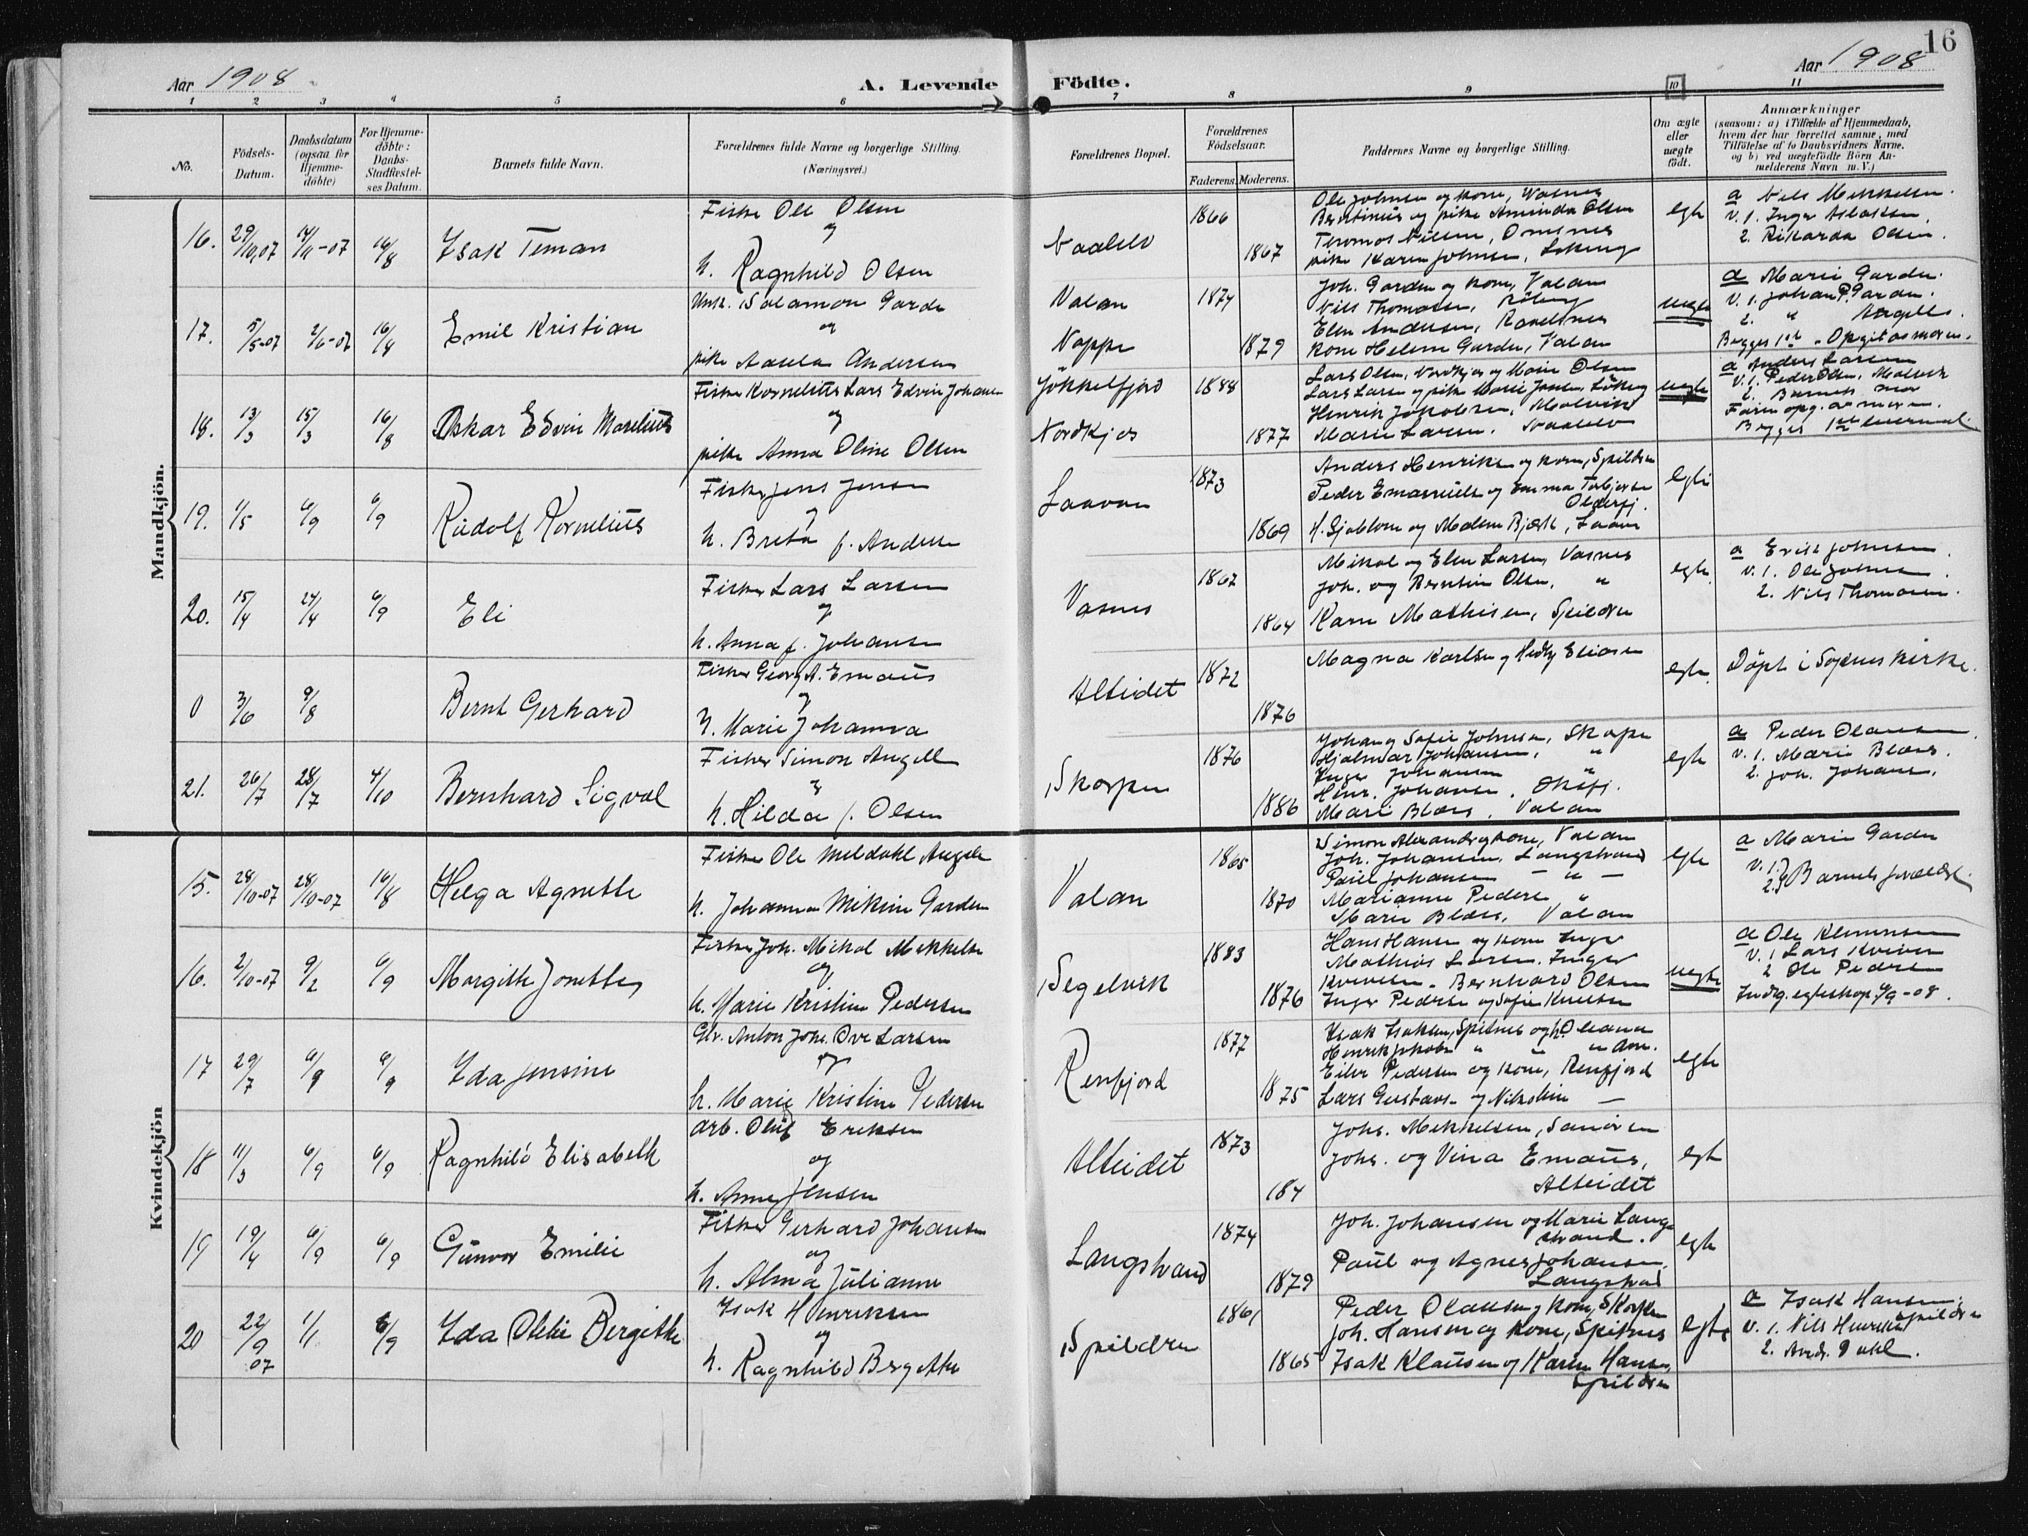 16
Aar 1908
A. Levende Födte.
Aar 1908
1 2 3 4 5 6 7 8 9 10 11
No. Födsels-Datum. Daabsdatum (ogsaa for Hjemme-döbte) For Hjemme-döbte: Daabs-Stadfæstel-ses Datum. Barnets fulde Navn. Forældrenes fulde Navne og borgerlige Stilling. (Næringsvei.) Forældrenes Bopæl. Forældrenes Födselsaar. Faderens. Moderens. Faddernes Navne og borgerlige Stilling. Om ægte eller uægte födt. Anmærkninger (saasom: a) i Tilfælde af Hjemmedaab, hvem der har forrettet samme, med Tilföielse af to Daabsvidners Navne, og b) ved uægtefödte Börn An-melderens Navn m. V.)
Mandkjön.
16. 29/10.07 17/11-07 16/8 Isak Teman
Fisker Ole Olsen
og
h. Ragnhild Olsen
1866 1867
Ole Johnsen og kone,
Berntinus og pike Aminda Olsen
Thomas Nilsen,
pike Karen Johnsen,
egte
a Nils Mikkelsen.
v. 1. Inger Aslaksen.
2. Rikarda Olsen.
17. 5/5-07 2/6-07 16/8 Emil Kristian
Unk. Salamon Garde
og
pike Andersen
Valan
Noppe
1874 1879
Joh. Garden og kone, Valan
Nils Thomassen,
Elen Andersen,
kone Helene Garden, Valan
uegte
a Marie Garden.
v. 1. Johan P. Garden.
2. " Angell.
Begges 1ste. Opgit av moren.
18. 13/3 15/3 16/8 Oskar Edvin Marelius
Fisker Kornelius Lars Edvin Johansen
og
pike Anna Oline Olsen
Jökkelfjord
Nordkjos
1888 1877
Lars Olsen, Nordkjos og Marie Olsen
Lars Larsen og pike Marie Jonsen,
Henrik Jakobsen, Malvik
Marie Larsen.
uegte
a Anders Larsen
v. 1. Peder Olsen, Malvik
2. Barnets mor
Faren opg. av moren.
Begges 1ste
19. 1/5 6/9 6/9 Rudolf Kornelius
Fisker Jens Jensen
og
h. Breta f. Andersen
1873 1869
Anders Henriksen og kone, Spildren
Peder Emanuelsen og Emma Torbjörnsen
H. Sjöblom og Malene Bjerk,
egte
20. 15/4 24/4 6/9 Eli
Fisker Lars Larsen
og
h. Anna f. Johansen
Vasnes
1867 1864
Mikal og Elen Larsen, Vasnes
Joh. og Berntine Olsen, "
Karen Mathisen, Spildren
egte
a Erik Johnsen.
v. 1. Ole Johnsen.
2. Nils Thomassen.
0 3/6 9/8 Bernt Gerhard
Fisker Georg A. Emaus
og
h. Marie Johanna
Alteidet
1872 1876
Magna Karlsen og Hedvig Eliasen
egte
Döpt i Soknes kirke.
21. 26/7 28/7 4/10 Bernhard Sigval
Fisker Simon Angell
og
h. Hilda f. Olsen
Skorpen
1876 1886
Johan og Sofie Johnsen, Skorpen
Hjalmar Johansen, "
Inger Johansen "
Henr. Johansen.
Marie Blæs. Valan
egte
a Peder Olausen.
v. 1. Marie Blæs.
2. Joh. Johans.
Kvindekjön
15. 28/10-07 28/10-07 16/8 Helga Agnethe
Fisker Ole Meldahl Angell
h. Johanna Mikine Garden
Valan
1865 1870
Simon Alexander og kone, Valan
Joh. Johansen, Langstrand
Paul Johansen — " —
Marianne Pedersen "
Marie Blæs, Valan
egte
a Marie Garden
v. 1. 2. Barnets forældre.
16. 2/10-07 9/2 6/9 Margith Jonette
Fisker Joh. Mikal Mikkelsen
og
h. Marie Kristine Pedersen
Segelvik
1883 1876
Hans Hansen og kone Inger
Mathias Larsen. Inger
Bernhard Olsen
Inger Pedersen og Sofie Knutsen
uegte
a Ole Klemmesen
v. 1 Lars
2 Ole Pedersen
Indg. egteskap 6/9-08.
17 29/7 6/9 6/9 Ida Jensine
Glv. Anton Joh. Ove Larsen
og
h. Marie Kristine Pedersen
Renfjord
1877 1875
Isak Isaksen, Spiknes og h. Oleana
Henrik Jakobs " " "
Eiler Pedersen og kone, Renfjord
Lars Gustavs. og Nikoline —
egte
18 11/3 6/9 6/9 Ragnhild Elisabeth
Arb. Oluf Eriksen
og
h. Anna Jensen
Alteidet
1873 187
Johs. Mikkelsen,
Johs. og Vina Emaus,
Alteidet
egte
19 19/4 6/9 6/9 Gunvor Emilie
Fisker Gerhard Johansen
og
h. Alma Julianne
Langstrand
1874 1879
Joh. Johansen og Marie Lang-
strand.
Paul og Agnes Johansen,
Langstrand
egte
20 22/9 07 1/1 6/9 Ida Oline Bergithe
Isak Henriksen
og
h. Ragnhild Bergithe
Spildren
1861 1865
Peder Olausen og kone, Skorpen
Joh. Hansen og kone, Spiknes
Isak Klausen og Karen Hansen
Spildren
egte
a Isak Hansen.
v. 1. Nils Henriksen Spildren
2. Andr. Dahl.